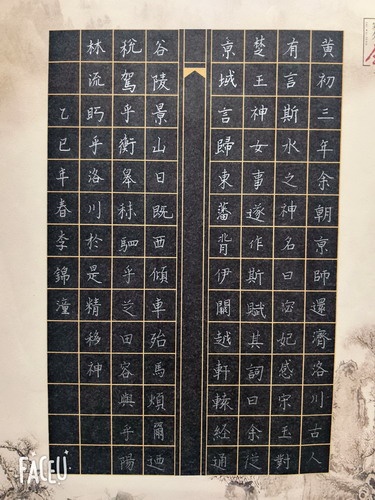 黄初三年余朝京師還濟洛川古人
有言斯水之神名曰宓妃感宋玉對
楚王神女事遂作斯賦其詞曰余從
京域言歸東藩背伊闕越軒轅經通
谷陵景山日既西傾車殆馬煩爾迺
税駕乎衡皋秣駟乎芝田容與乎陽
林流眄乎洛川於是精移神
乙巳年春李錦潼
FACEU